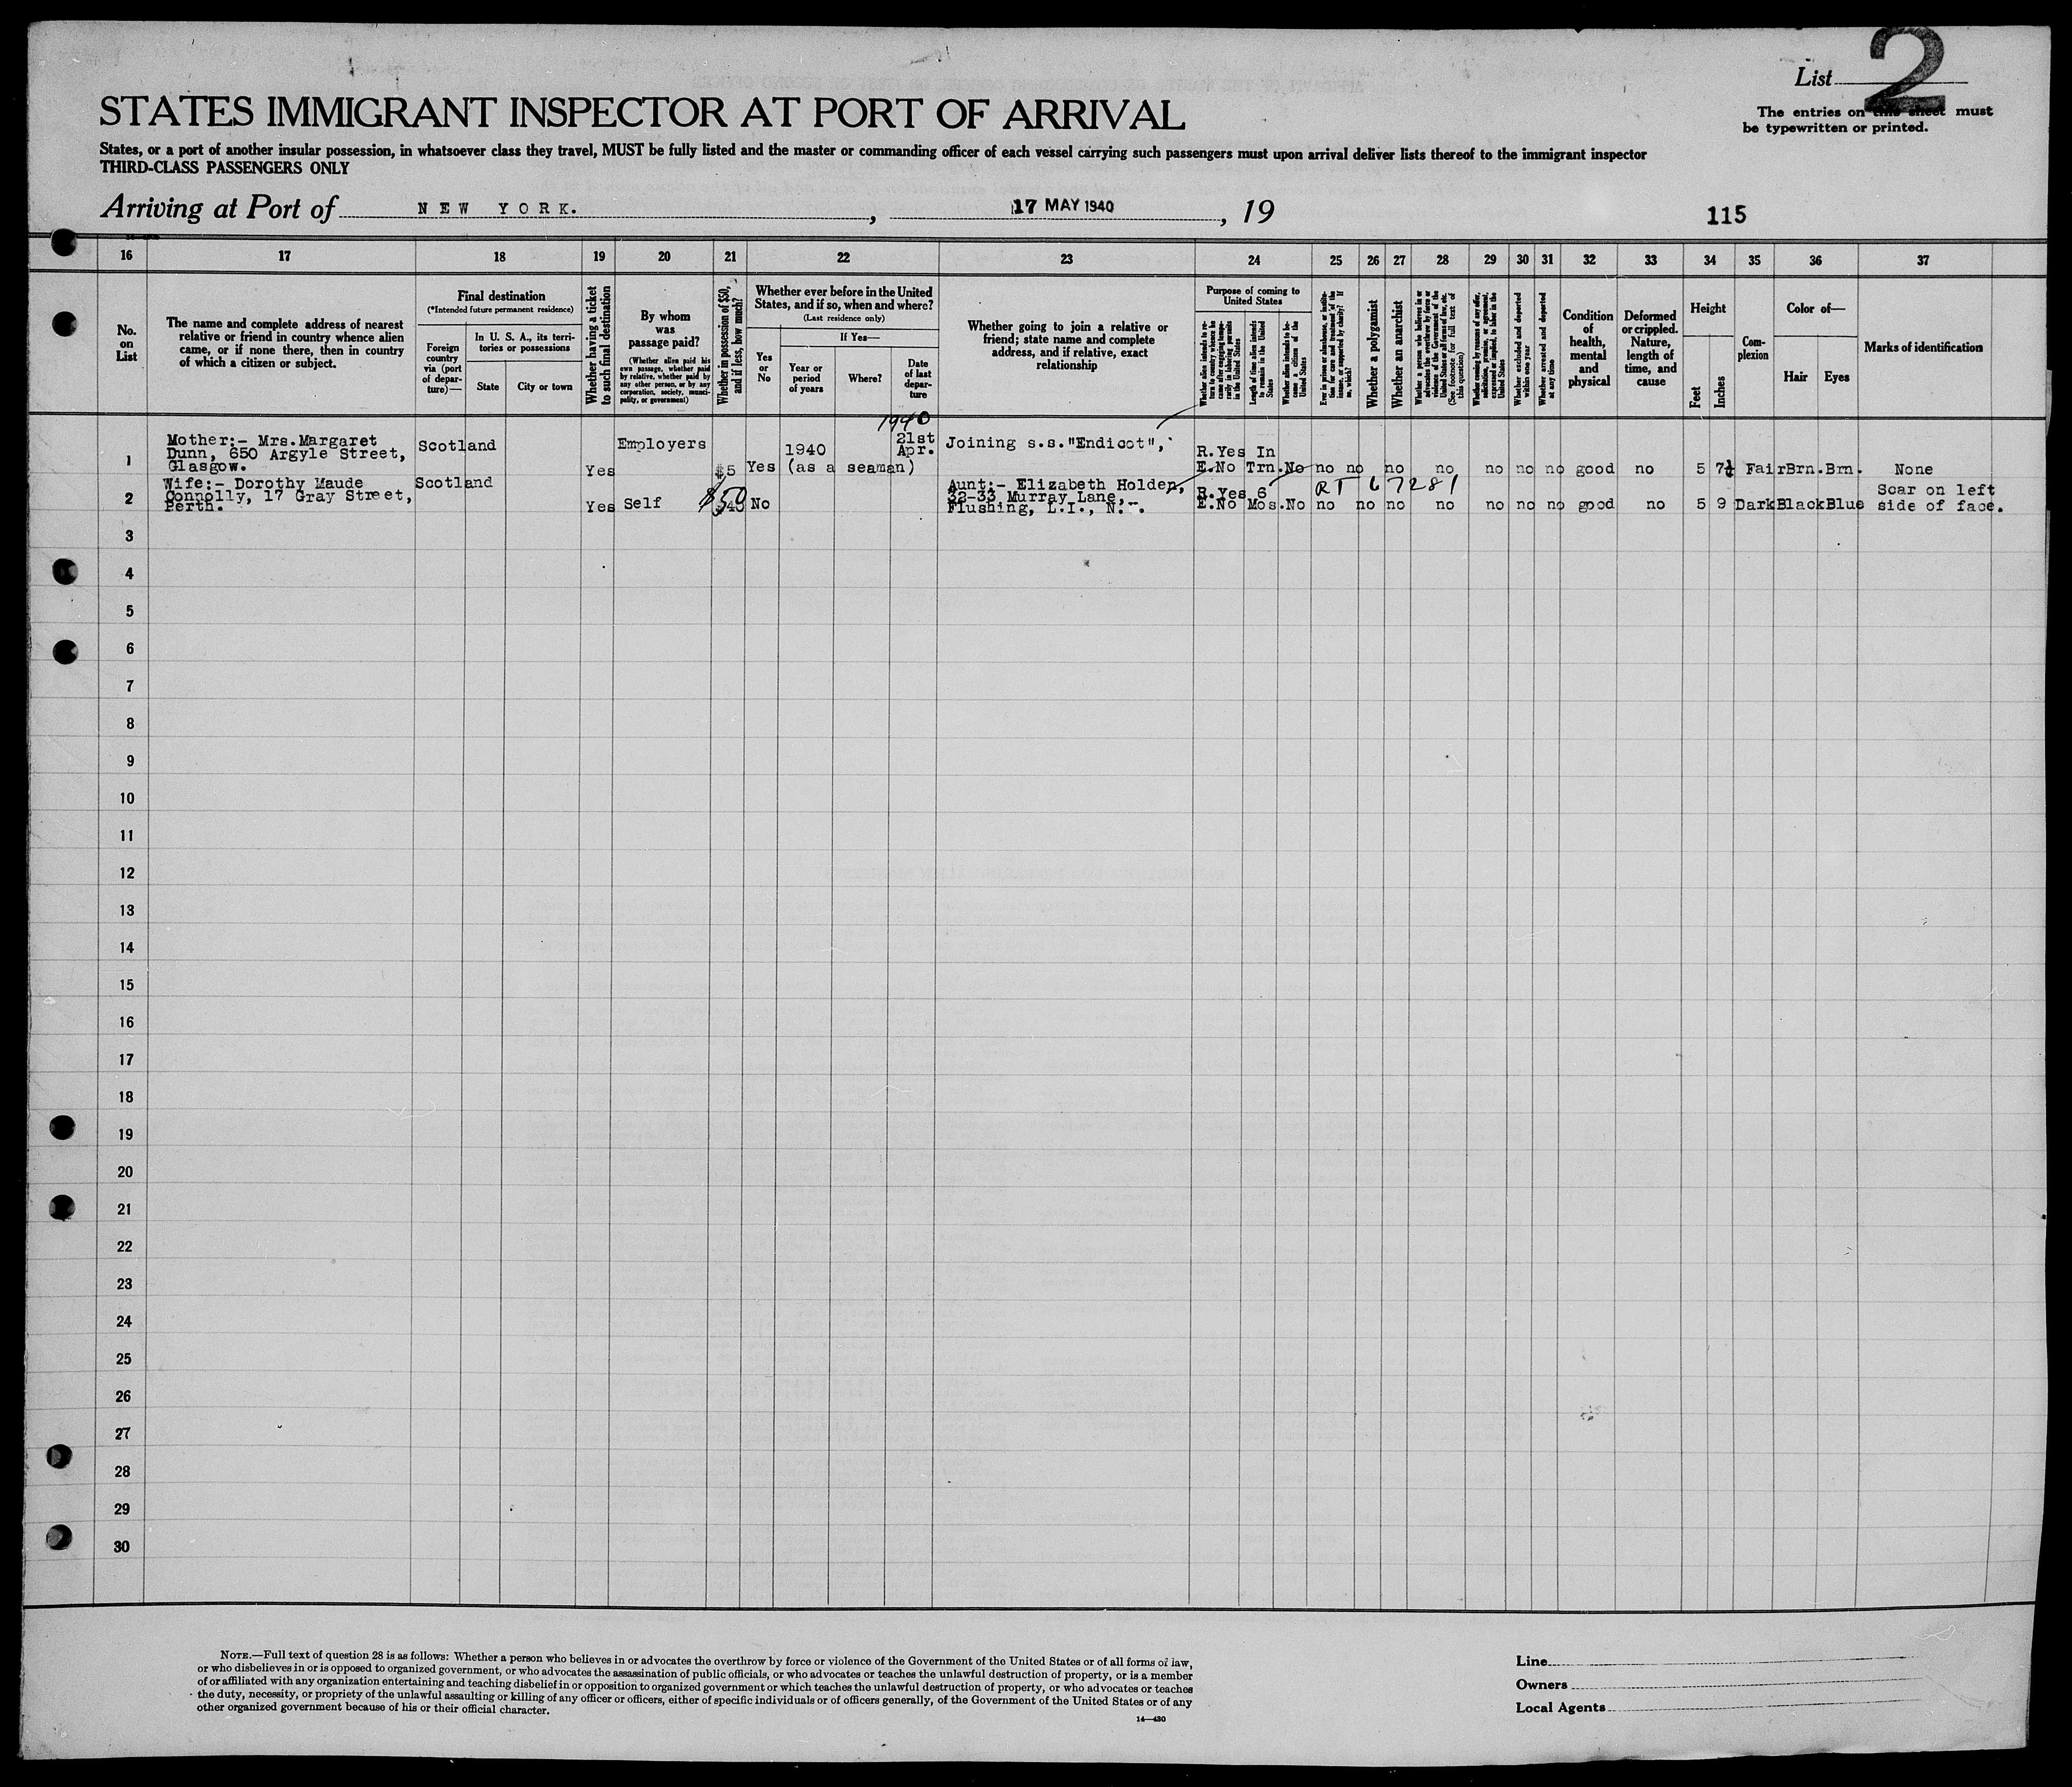 List 2
The entries on this sheet must
be typewritten or printed.
STATES IMMIGRANT INSPECTOR AT PORT OF ARRIVAL
States, or a port of another insular possession, in whatsoever class they travel, MUST be fully listed and the master or commanding officer of each vessel carrying such passengers must upon arrival deliver lists thereof to the immigrant inspector
THIRD-CLASS PASSENGERS ONLY
Arriving at Port of NEW YORK. , 17 MAY 1940 , 19
115
16 17 18 19 20 21 22 23 24 25 26 27 28 29 30 31 32 33 34 35 36 37
No.
on
List
The name and complete address of nearest
relative or friend in country whence alien
came, or if none there, then in country
of which a citizen or subject.
Final destination
(*Intended future permanent residence)
Foreign
country
via (port
of depar-
ture)—
In U. S. A., its terri-
tories or possessions
State
City or town
Whether having a ticket
to such final destination
By whom
was
passage paid?
(Whether alien paid his
own passage, whether paid
by relative, whether paid by
any other person, or by any
corporation, society, munici-
pality, or government)
Whether in possession of $50,
and if less, how much?
Whether ever before in the United
States, and if so, when and where?
(Last residence only)
Yes
or
No
If Yes—
Year or
period
of years
Where?
Date
of last
depar-
ture
Whether going to join a relative or
friend; state name and complete
address, and if relative, exact
relationship
Purpose of coming to
United States
Whether alien intends to re-
turn to country whence he
came after engaging tempo-
rarily in laboring pursuits
in the United States
Length of time alien intends
to remain in the United
States
Whether alien intends to be-
come a citizen of the
United States
Ever in prison or almshouse, or institu-
tion for care and treatment of the
insane, or supported by charity? If
so, which?
Whether a polygamist
Whether an anarchist
Whether a person who believes in or
advocates the overthrow by force or
violence of the Government of the
United States or all forms of law, etc.
(See footnote for full text of
this question)
Whether coming by reasons of any offer,
solicitation, promise, or agreement,
expressed or implied, to labor in the
United States
Whether excluded and deported
within one year
Whether arrested and deported
at any time
Condition
of
health,
mental
and
physical
Deformed
or crippled.
Nature,
length of
time, and
cause
Height
Feet
Inches
Com-
plexion
Color of—
Hair
Eyes
Marks of identification
1 Mother:- Mrs.Margaret
Dunn, 650 Argyle Street,
Glasgow.
Scotland
Yes
Employers
$5
Yes
1940
(as a seaman)
1940
21st
Apr.
Joining s.s."Endicot",
R.Yes In
E.No Trn.No no no no no no no no good no 5 7½ Fair Brn. Brn. None
2 Wife:- Dorothy Maude
Connolly, 17 Gray Street,
Perth.
Scotland
Yes
Self
$50
No
Aunt:- Elizabeth Holden,
32-33 Murray Lane,
Flushing, L.I., N.
RT 67281
R.Yes 6
E.No Mos.No no no no no no no no good no 5 9 Dark Black Blue
Scar on left
side of face.
3
4
5
6
7
8
9
10
11
12
13
14
15
16
17
18
19
20
21
22
23
24
25
26
27
28
29
30
NOTE.—Full text of question 28 is as follows: Whether a person who believes in or advocates the overthrow by force or violence of the Government of the United States or of all forms of law,
or who disbelieves in or is opposed to organized government, or who advocates the assassination of public officials, or who advocates or teaches the unlawful destruction of property, or is a member
of or affiliated with any organization entertaining and teaching disbelief in or opposition to organized government or which teaches the unlawful destruction of property, or who advocates or teaches
the duty, necessity, or propriety of the unlawful assaulting or killing of any officer or officers, either of specific individuals or of officers generally, of the Government of the United States or of any
other organized government because of his or their official character.
14—430
Line
Owners
Local Agents